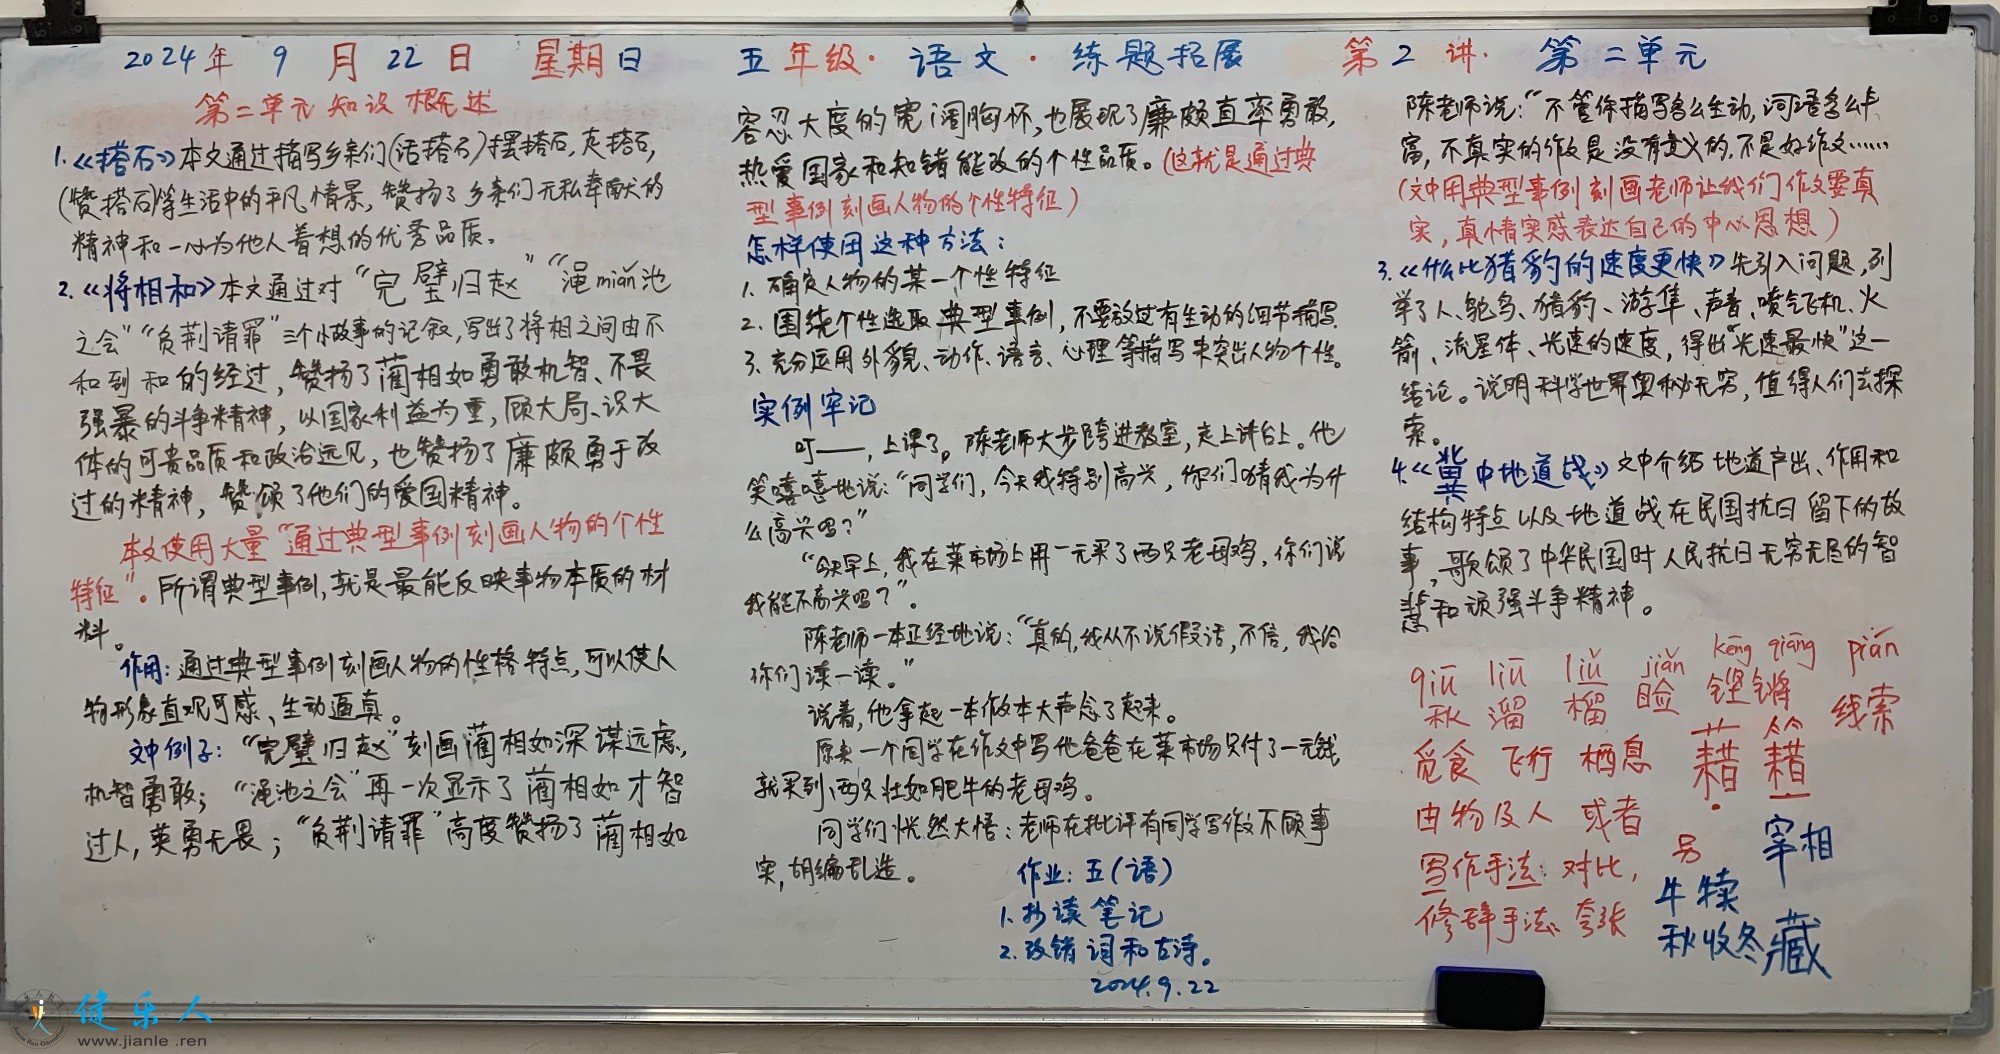 2024年 9 月 22 日 星期日 五年级·语文·练题拓展 第2讲· 第二单元
第二单元知识概述
1.《搭石》本文通过描写乡亲们(话搭石)摆搭石,走搭石,
(赞搭石)等生活中的平凡情景,赞扬了乡亲们无私奉献的
精神和一心为他人着想的优秀品质。
2.《将相和》本文通过对“完璧归赵”“渑miǎn池
之会”“负荆请罪”三个小故事的记叙,写出了将相之间由不
和到和的经过,赞扬了蔺相如勇敢机智、不畏
强暴的斗争精神,以国家利益为重,顾大局、识大
体的可贵品质和政治远见,也赞扬了廉颇勇于改
过的精神,赞颂了他们的爱国精神。
本文使用大量“通过典型事例刻画人物的个性
特征”。所谓典型事例,就是最能反映事物本质的材
料。
作用:通过典型事例刻画人物的性格特点,可以使人
物形象直观可感、生动逼真。
文中例子:“完璧归赵”刻画蔺相如深谋远虑,
机智勇敢;“渑池之会”再一次显示了蔺相如才智
过人,英勇无畏;“负荆请罪”高度赞扬了蔺相如
容忍大度的宽阔胸怀,也展现了廉颇直率勇敢,
热爱国家和知错能改的个性品质。(这就是通过典
型事例刻画人物的个性特征)
怎样使用这种方法:
1.确定人物的某一个性特征
2.围绕个性选取典型事例,不要放过有生动的细节描写.
3.充分运用外貌、动作、语言、心理等描写来突出人物个性。
实例牢记
叮——,上课了。陈老师大步跨进教室,走上讲台上。他
笑嘻嘻地说:“同学们,今天我特别高兴,你们猜我为什
么高兴吗?”
“今天早上,我在菜市场上用一元买了两只老母鸡,你们说
我能不高兴吗?”。
陈老师一本正经地说:“真的,我从不说假话,不信,我给
你们读一读。”
说着,他拿起一本作文本大声念了起来。
原来一个同学在作文中写他爸爸在菜市场只付了一元钱
就买到两只壮如肥牛的老母鸡。
同学们恍然大悟:老师在批评有同学写作文不顾事
实,胡编乱造。
作业:五(语)
1.抄读笔记
2.改错词和古诗。
2024.9.22
陈老师说:“不管你描写多么生动,词语多么丰
富,不真实的作文是没有意义的.不是好作文……
(文中用典型事例刻画老师让我们作文要真
实,真情实感表达自己的中心思想)
3.《什么比猎豹的速度更快》先引入问题,列
举了人、鸵鸟、猎豹、游隼、声音、喷气飞机、火
箭、流星体、光速的速度,得出“光速最快”这一
结论。说明科学世界奥秘无穷,值得人们去探
索。
4.《冀中地道战》文中介绍地道产出、作用和
结构特点以及地道战在民国抗日留下的故
事,歌颂了中华民国时人民抗日无穷无尽的智
慧和顽强斗争精神。
qiū liū liú jiǎn kēng qiāng piān
秋 溜 榴 睑 铿锵 线索
觅食 飞行 栖息 藉 籍
由物及人 或者
写作手法:对比,
修辞手法、夸张
另 宰相
牛犊
秋收冬藏
健乐人
www.jianle.ren